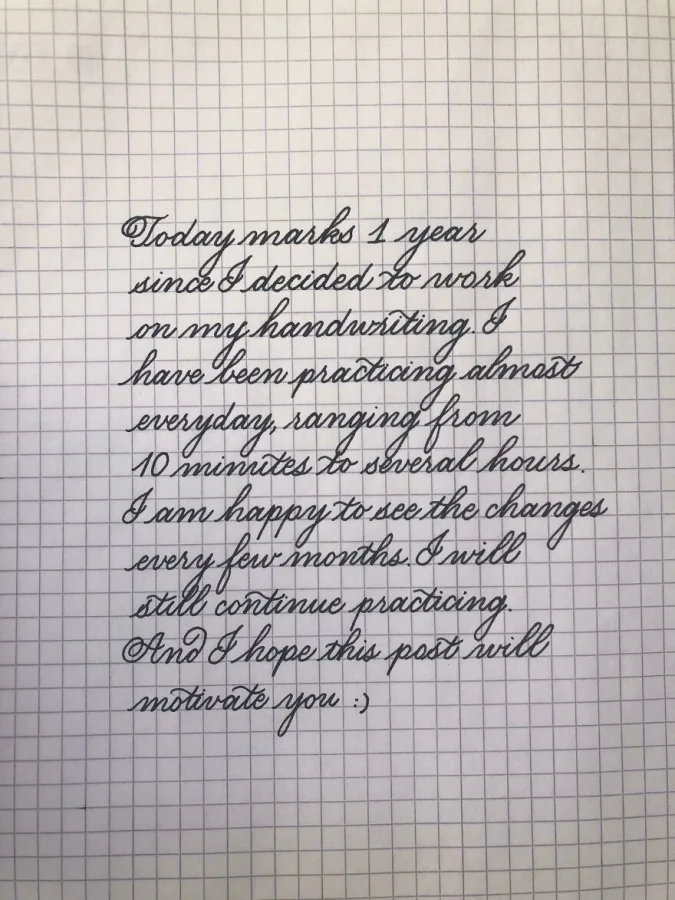 Today marks 1 year
since I decided to work
on my handwriting. I
have been practicing almost
everyday, ranging from
10 minutes to several hours.
I am happy to see the changes
every few months. I will
still continue practicing.
And I hope this post will
motivate you :)